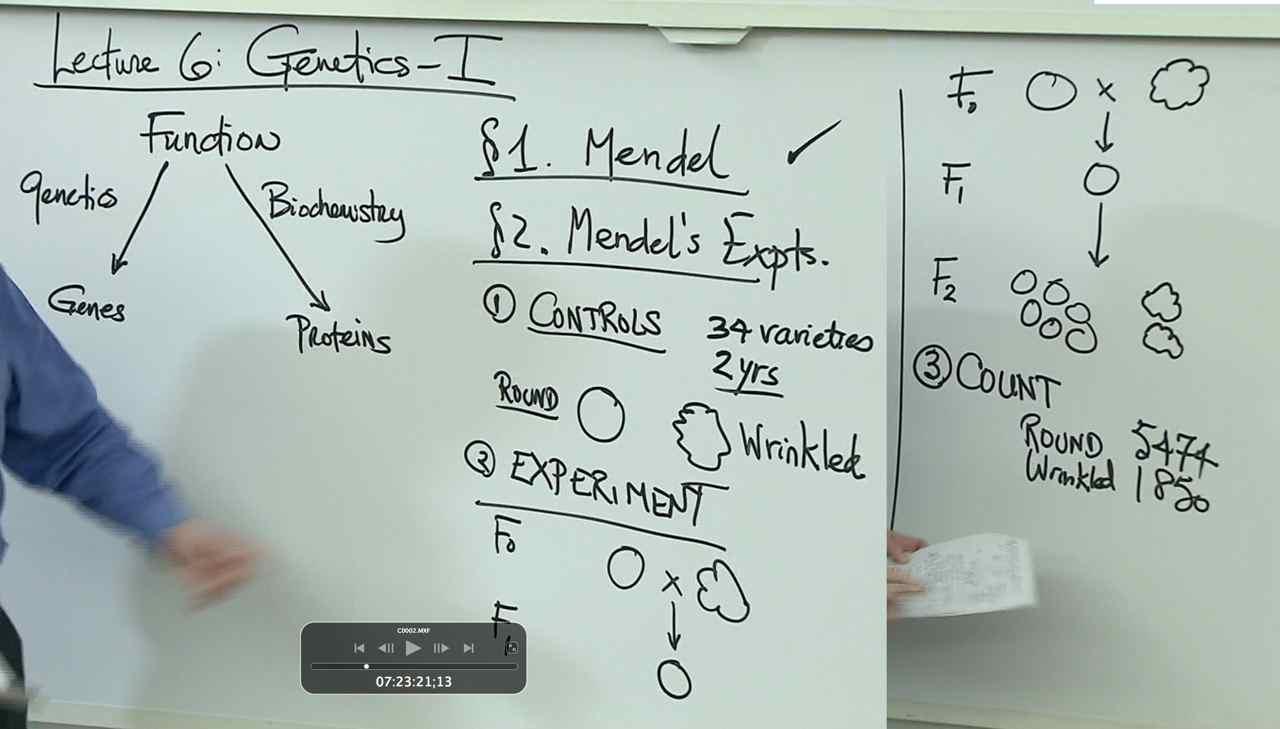 Lecture 6: Genetics-I
Function
genetics
Biochemistry
Genes
Proteins
§1. Mendel ✓
§2. Mendel's Expts.
① CONTROLS
34 varieties
2 yrs
ROUND
Wrinkled
② EXPERIMENT
F₀
×
F₁
C0002.MXF
07:23:21;13
F₀ ×
F₁
F₂
③ COUNT
ROUND 5474
Wrinkled 1850